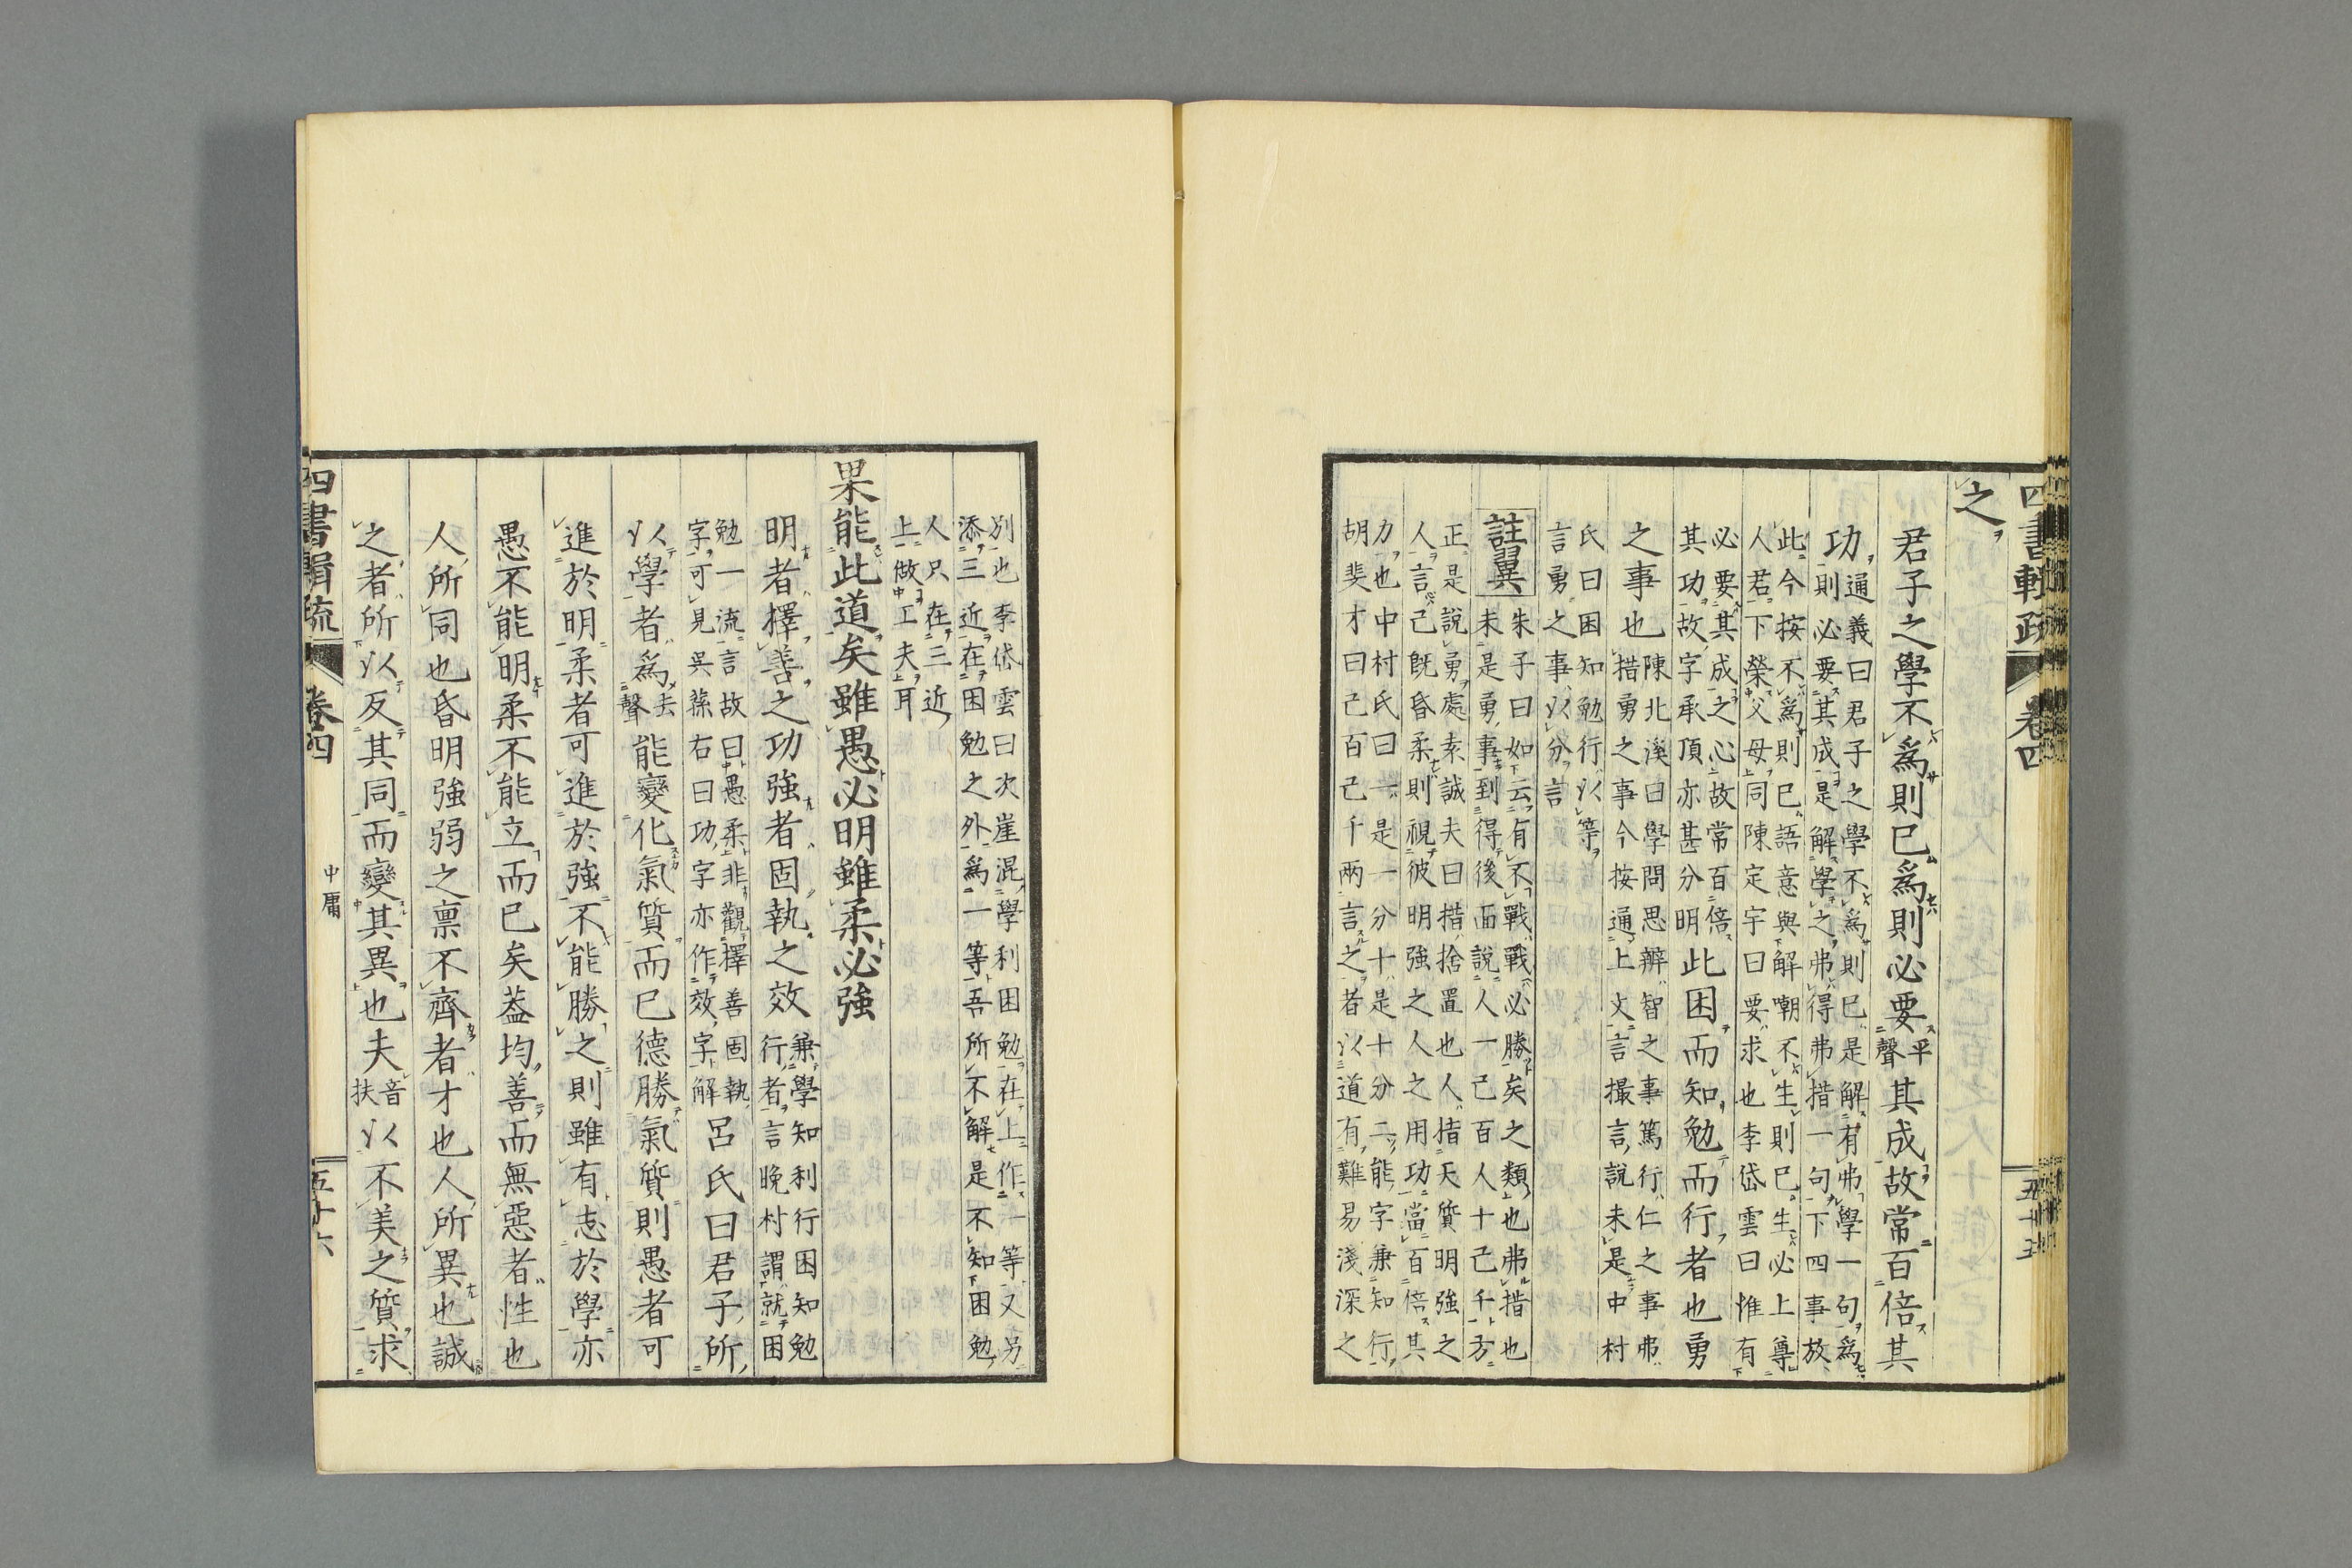 四書輯疏 卷四 五十五
之
君子之學不爲則已爲則必要平聲其成故常百倍其
功通義曰君子之學不爲則已是解有弗學一句爲
則必要其成是解學之弗得弗措一句下四事放
此今按不爲則已語意與解嘲不生則已生必上尊
人君下榮父母同陳定宇曰要求也李岱雲曰惟有
必要其成之心故常百倍
其功故字承頂亦甚分明此困而知勉而行者也勇
之事也陳北溪曰學問思辨智之事篤行仁之事弗
措勇之事今按通上文言撮言說未是中村
氏曰困知勉行以等
言勇之事以分言
註翼朱子曰如云有不戰戰必勝矣之類也弗措也
未是勇事到得後面說人一己百人十己千方
正是說勇處素誠夫曰措捨置也人指天質明強之
人言己既昏柔則視彼明強之人之用功當百倍其
力也中村氏曰一是一分十是十分二能字兼知行
胡斐才曰己百己千兩言之者以道有難易淺深之
別也李岱雲曰次崖混學利困勉在上作一等又另
添三近在困勉之外爲一等吾所不解是不知困勉
人只在三近
上做工夫耳
果能此道矣雖愚必明雖柔必強
明者擇善之功強者固執之效兼學知利行困知勉
行者言晚村謂就困
勉一流言故曰愚柔非觀擇善固執
字可見吳蓀右曰功字亦作效字解呂氏曰君子所
以學者爲去聲能變化氣質而已德勝氣質則愚者可
進於明柔者可進於強不能勝之則雖有志於學亦
愚不能明柔不能立而已矣蓋均善而無惡者性也
人所同也昏明強弱之稟不齊者才也人所異也誠
之者所以反其同而變其異也夫音扶以不美之質求
四書輯疏 卷四 中庸 五十六